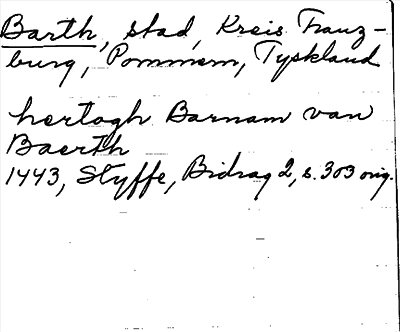 Barth, stad, Kreis Franz-
burg, Pommern, Tyskland
hertogh Barnam van
Baerth
1443, Styffe, Bidrag 2, s. 303 orig.